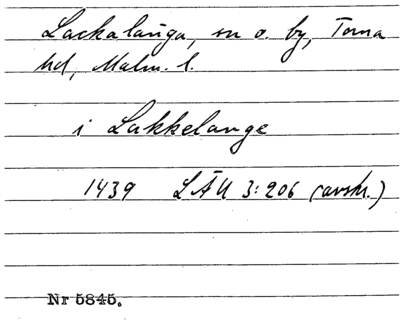 Lackalänga, sn o. by, Torna
hd, Malm. l.
i Lakkelange
1439 LÄU 3:206 (avskr.)
Nr 5845.